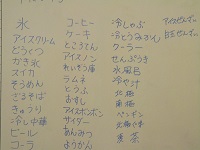 氷
アイスクリーム
どうくつ
かき氷
スイカ
そうめん
ざるそば
きゅうり
冷し中華
ビール
コーラ
コーヒー
ケーキ
ところてん
アイスノン
れいぞう庫
ラムネ
とうふ
おすし
アイスボンボン
サイダー
あんみつ
ようかん
冷しゃぶ
冷とうみかん
クーラー
せんぷうき
水風呂
冷や汁
北極
南極
ペンギン
北極ぐま
麦茶